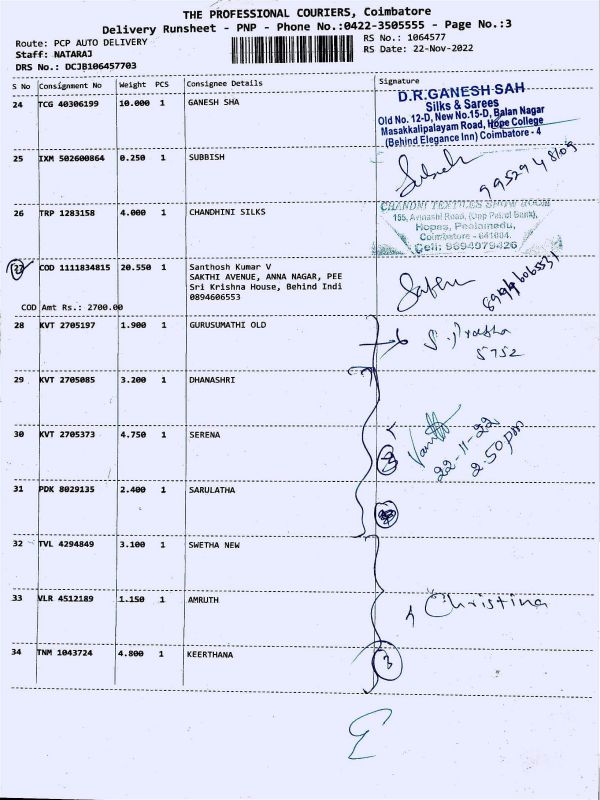 THE PROFESSIONAL COURIERS, Coimbatore
Delivery Runsheet - PNP - Phone No.:0422-3505555 - Page No.:3
Route: PCP AUTO DELIVERY
RS No.: 1064577
Staff: NATARAJ
RS Date: 22-Nov-2022
DRS No.: DCJB106457703
S No Consignment No Weight PCS Consignee Details Signature
24 TCG 40306199 10.000 1 GANESH SHA
D.R.GANESH SAH
Silks & Sarees
Old No. 12-D, New No.15-D, Balan Nagar
Masakkalipalayam Road, Hope College
(Behind Elegance Inn) Coimbatore - 4
25 IXM 502600864 0.250 1 SUBBISH
9952948109
26 TRP 1283158 4.000 1 CHANDHINI SILKS
CHANDNI TEXTILES SHOW ROOM
155, Avinashi Road, (Opp Petrol Bank),
Hopes, Peelamedu,
Coimbatore - 641004.
Cell: 9894979426
27 COD 1111834815 20.550 1 Santhosh Kumar V
SAKTHI AVENUE, ANNA NAGAR, PEE
Sri Krishna House, Behind Indi
0894606553
COD Amt Rs.: 2700.00
28 KVT 2705197 1.900 1 GURUSUMATHI OLD
5752
29 KVT 2705085 3.200 1 DHANASHRI
30 KVT 2705373 4.750 1 SERENA
22-11-22
2.50pm
31 PDK 8029135 2.400 1 SARULATHA
32 TVL 4294849 3.100 1 SWETHA NEW
33 VLR 4512189 1.150 1 AMRUTH
Christina
34 TNM 1043724 4.800 1 KEERTHANA
3